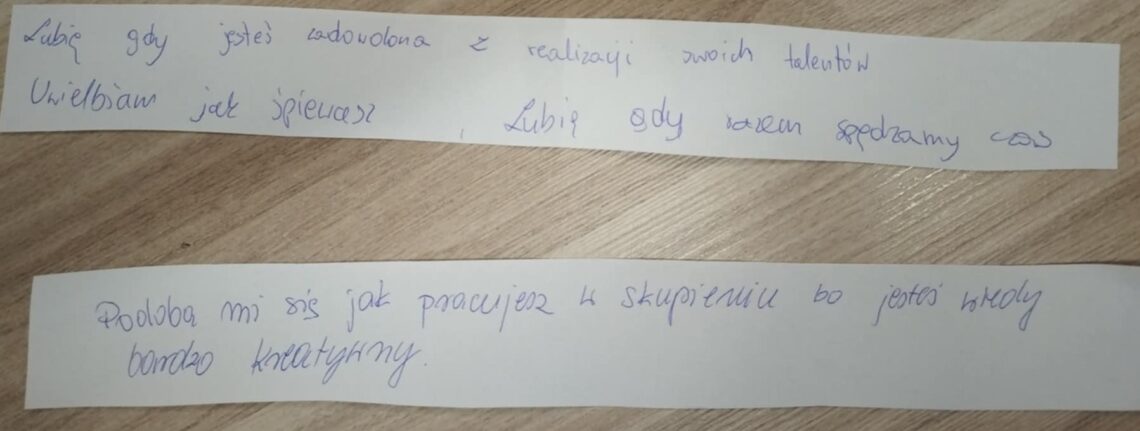 Lubię gdy jesteś zadowolona z realizacji swoich talentów
Uwielbiam jak śpiewasz , Lubię gdy razem spędzamy czas
Podoba mi się jak pracujesz w skupieniu bo jesteś wtedy
bardzo kreatywny.